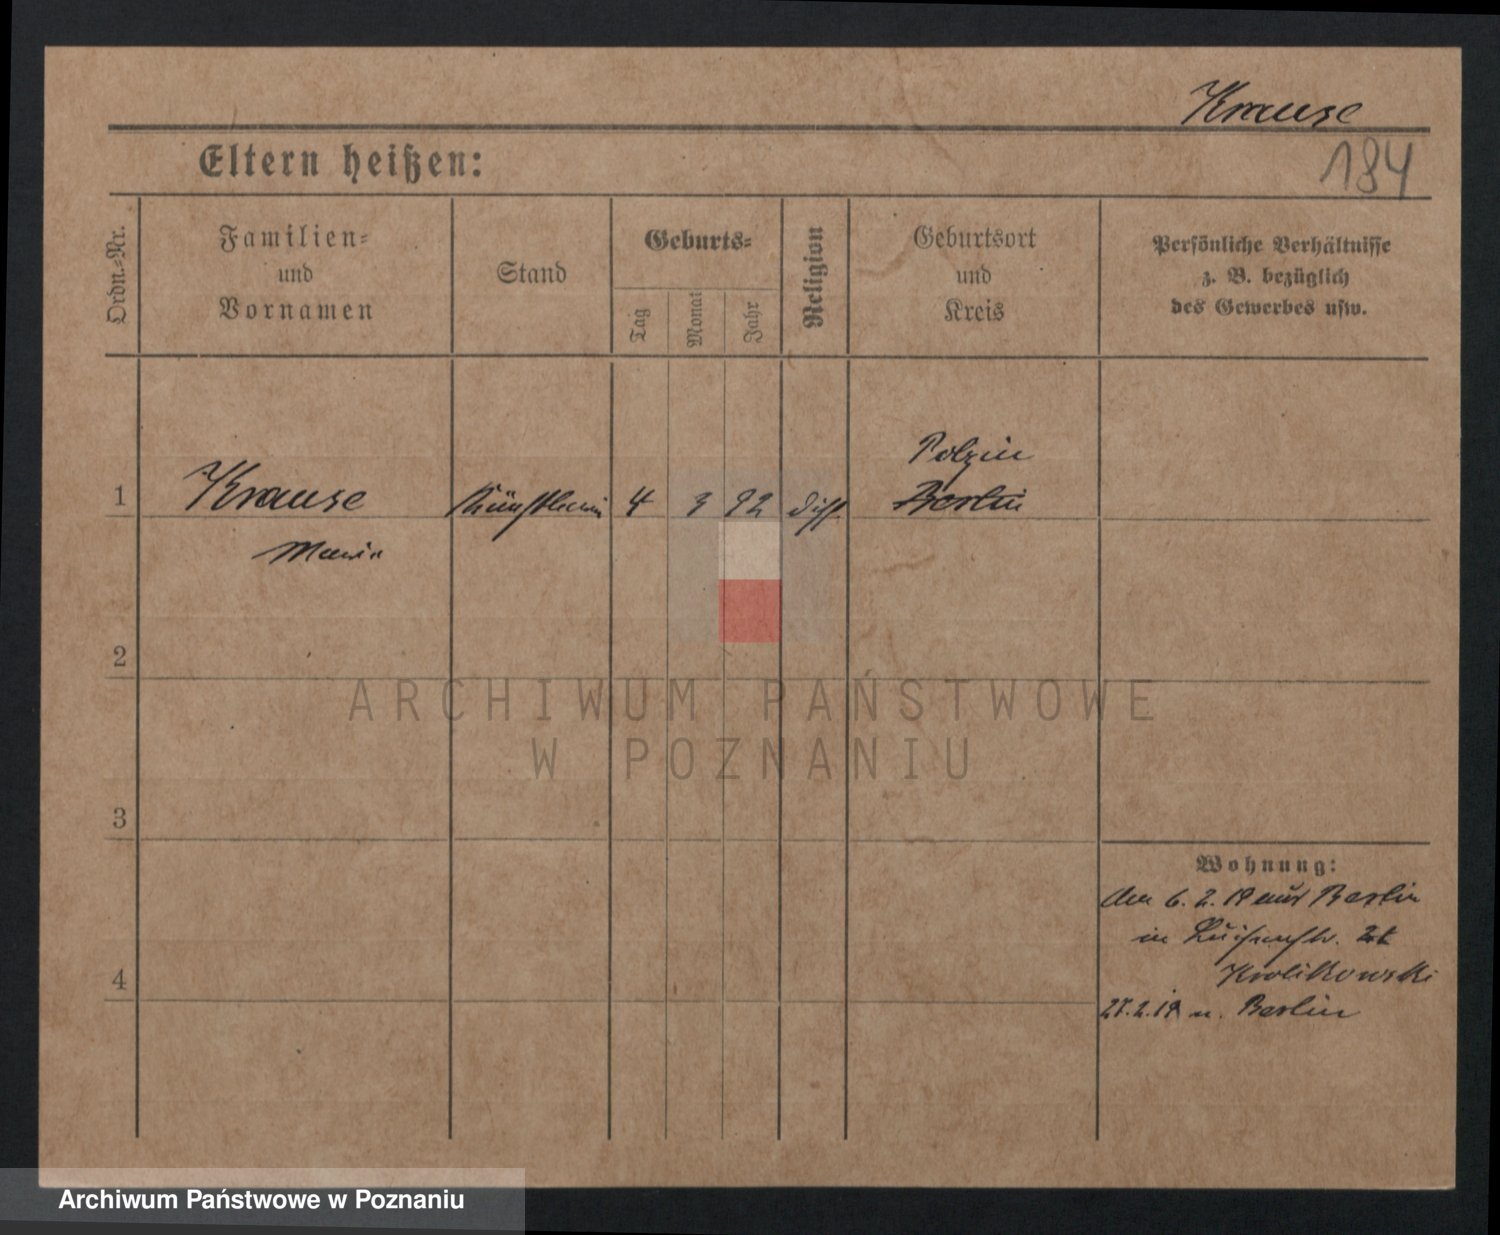 Krause
Eltern heißen:
184
Ordn.-Nr.
Familien-
und
Vornamen
Stand
Geburts-
Tag
Monat
Jahr
Religion
Geburtsort
und
Kreis
Persönliche Verhältnisse
z. B. bezüglich
des Gewerbes usw.
Polzin
1 Krause Künstlerin 4 3 92 diss. Berlin
Maria
2
ARCHIWUM PAŃSTWOWE
W POZNANIU
3
Wohnung:
Am 6. 2. 19 aus Berlin
in Luisenstr.
4
Krolikowski
2.19 n. Berlin
Archiwum Państwowe w Poznaniu